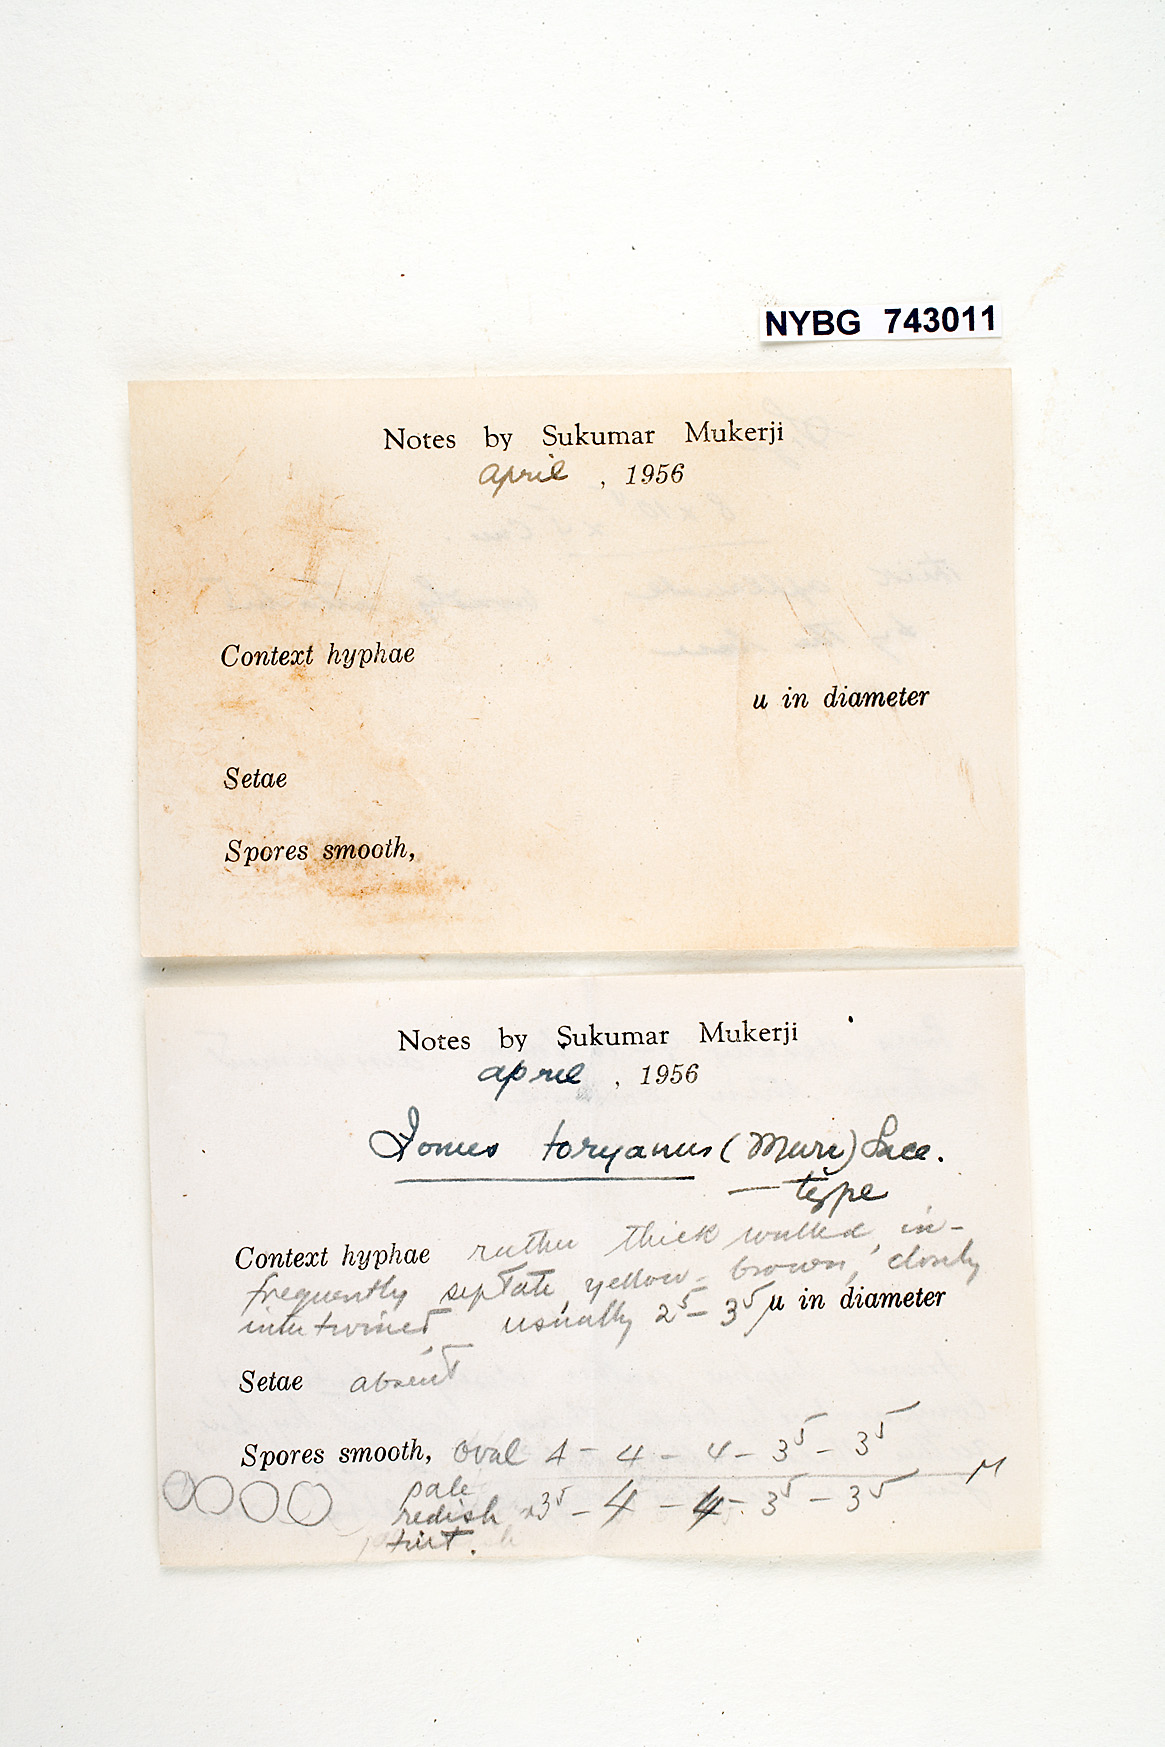 NYBG 743011
Notes by Sukumar Mukerji
april , 1956
Context hyphae
u in diameter
Setae
Spores smooth,
Notes by Sukumar Mukerji
april , 1956
Fomes toryanus (Murr) Sacc.
— type
Context hyphae rather thick walled, in-
frequently septate, yellow-brown, closely
intertwined usually 2⁵ – 3⁵ µ in diameter
Setae absent
Spores smooth, oval 4 – 4 – 4 – 3⁵ – 3⁵
pale
redish x 3⁵ – 4 – 4 – 3⁵ – 3⁵ µ
tint.